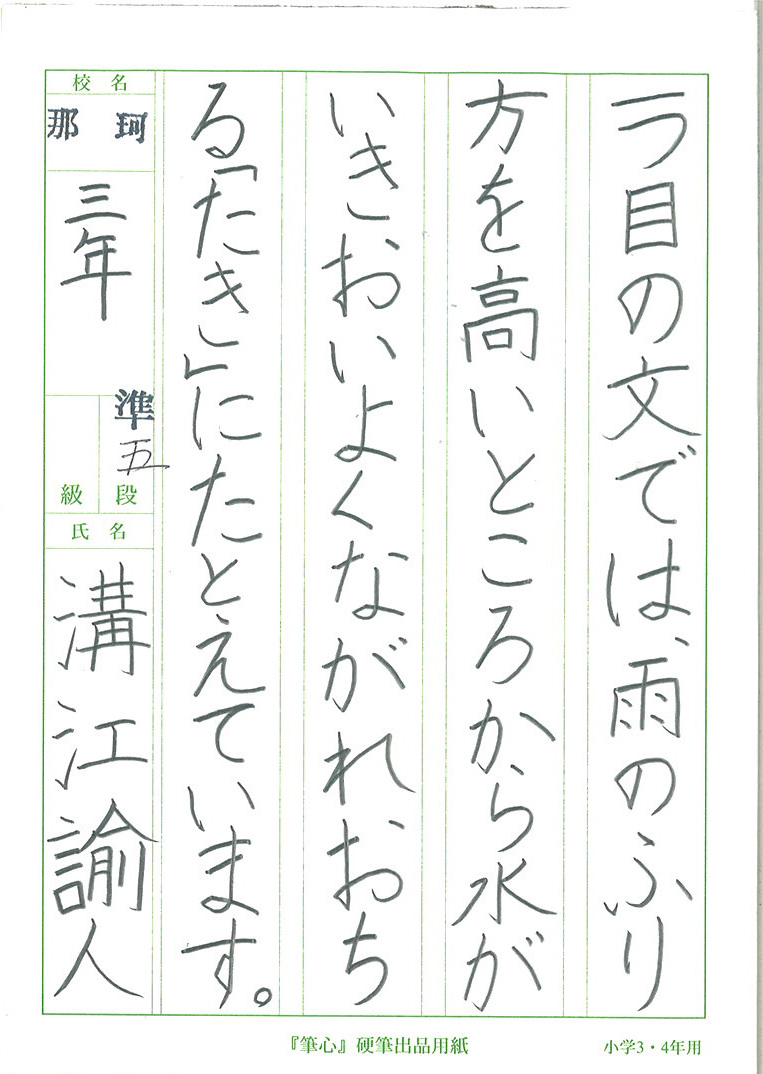 一つ目の文では、雨のふり
方を高いところから水が
いきおいよくながれおち
る「たき」にたとえています。
校名
那珂
三年
準五段
級
氏名
溝江諭人
『筆心』硬筆出品用紙
小学3・4年用